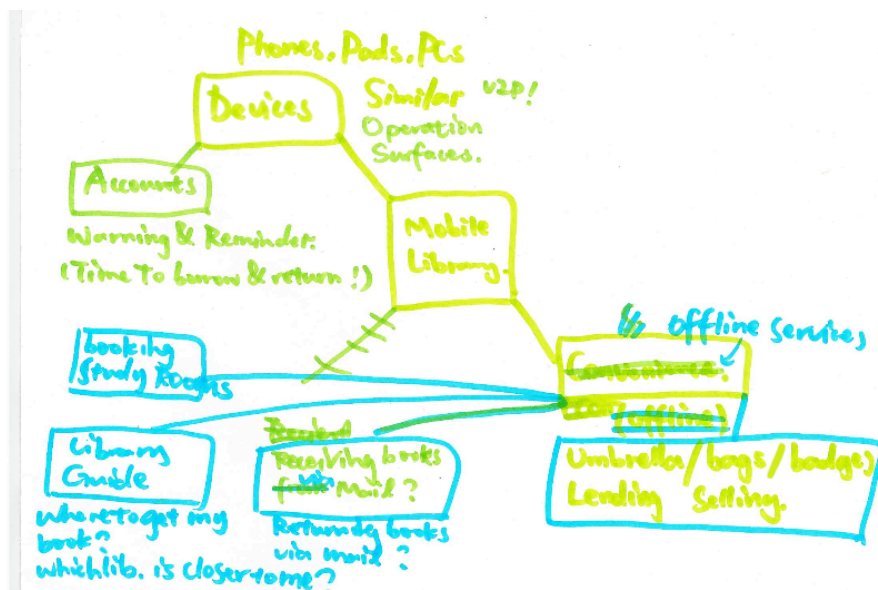 Phones. Pads. PCs
Devices
Similar v2p!
Operation
Surfaces.
Accounts
Warning & Reminder.
(Time To borrow & return !)
Mobile
Library.
offline services
Convenience.
(offline)
Umbrella/bags/badges
Lending Selling.
booking
Study Rooms
Library
Guide
where to get my
book?
which lib. is closer to me?
Receiving books
via Mail?
Returning books
via mail?